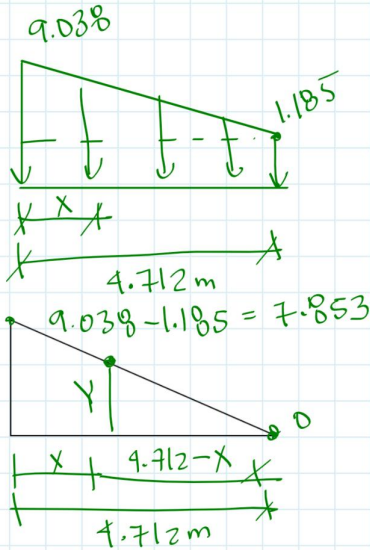 9.038
1.185
X
4.712 m
9.038-1.185 = 7.853
Y
0
X 4.712-X
4.712 m